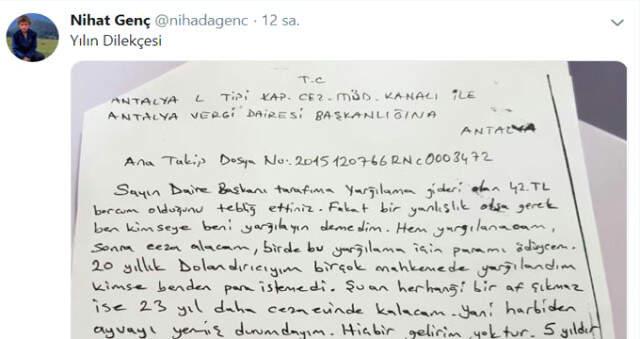 Nihat Genç @nihadagenc · 12 sa.
Yılın Dilekçesi
T.C
ANTALYA L TİPİ KAP. CEZ. MÜD. KANALI İLE
ANTALYA VERGİ DAİRESİ BAŞKANLIĞINA
ANTALYA
Ana Takip Dosya No:. 2015120766RNC0003472
Sayın Daire Başkanı tarafıma Yargılama gideri olan 42.TL
borcum olduğunu tebliğ ettiniz. Fakat bir yanlışlık olsa gerek
ben kimseye beni yargılayın demedim. Hem yargılanacam,
sonra ceza alacam, birde bu yargılama için paramı ödiycem.
20 yıllık Dolandırıcıyım birçok mahkemede yargılandım
kimse benden para istemedi. Şuan herhangi bir af çıkmaz
ise 23 yıl daha cezaevinde kalacam. Yani harbiden
ayvayı yemiş durumdayım. Hiçbir gelirim yoktur. 5 yıldır